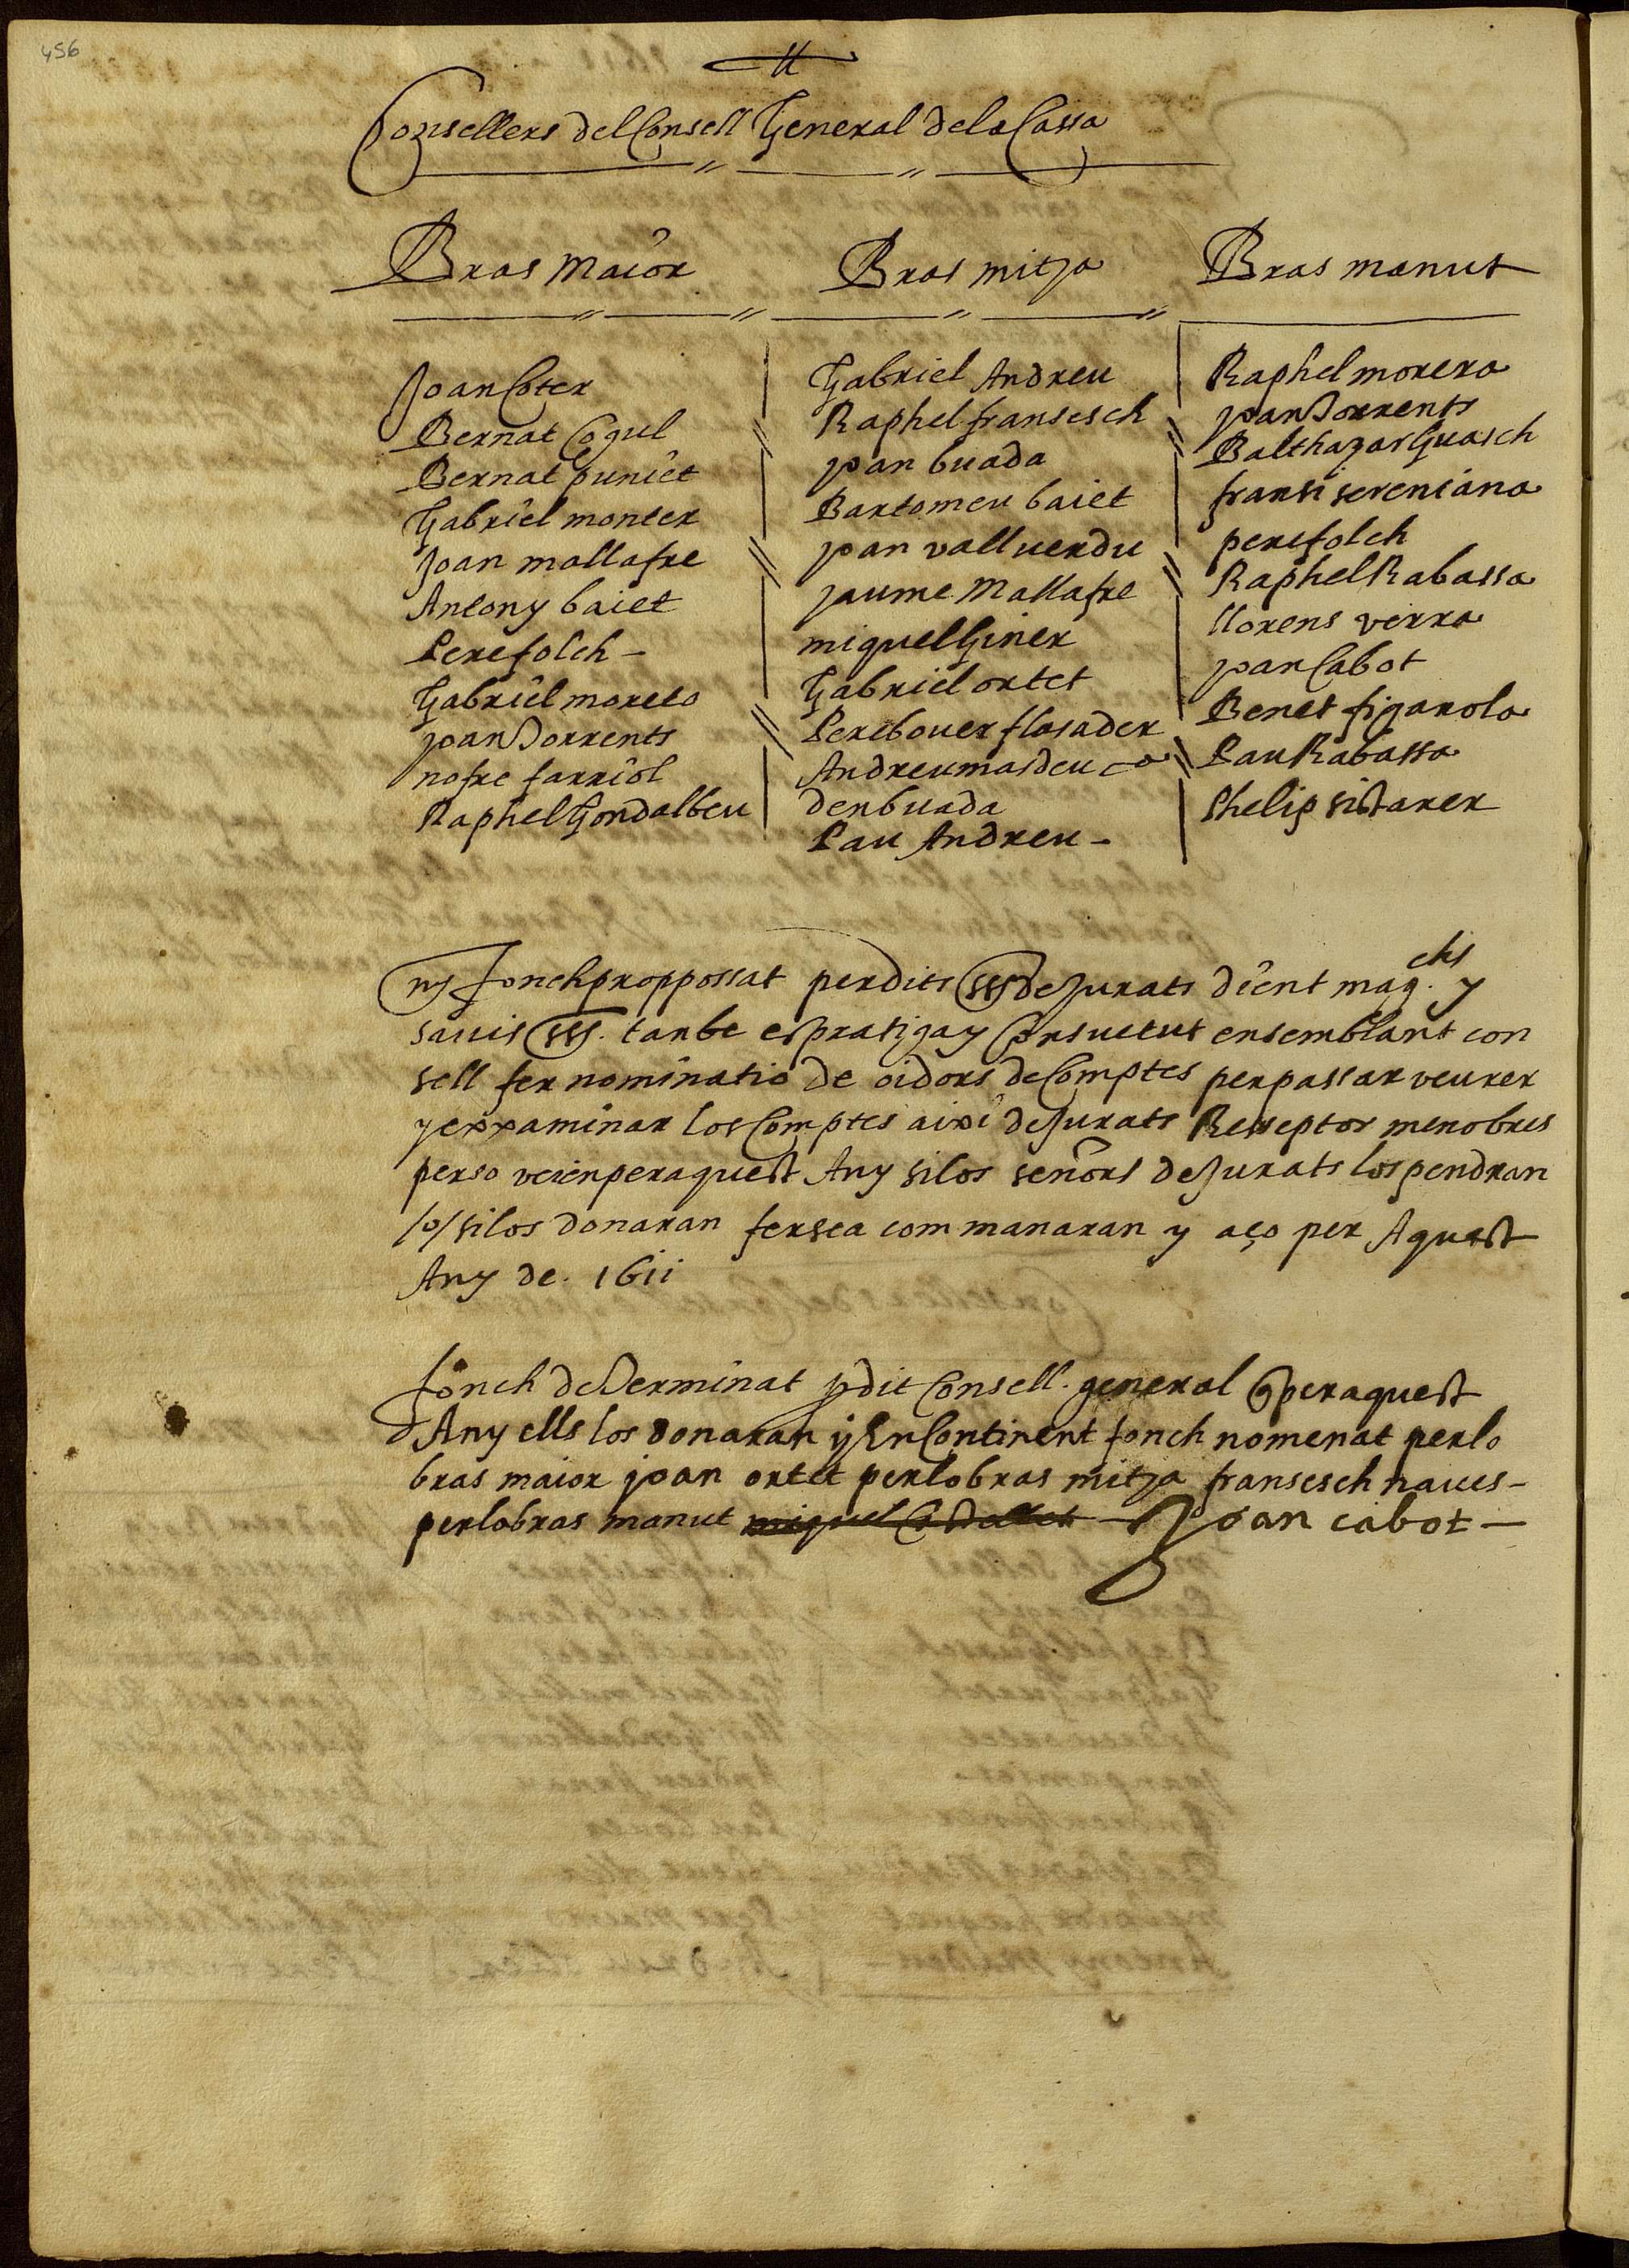 456
Consellers del Consell General de la Cassa
Bras Maior
Bras mitja
Bras manut
Joan Coter
Bernat Cogul
Bernat puniet
Gabriel monter
Joan mallafre
Antony baiet
Pere folch
Gabriel moreto
joan Torrents
nofre farriol
Raphel Gondalbeu
Gabriel Andreu
Raphel fransesch
joan buada
Bartomeu baiet
joan valluerdu
jaume Mallafre
miquel Giner
Gabriel ortet
Pere bouer flasader
Andreu masdeu
den buada
Pau Andreu
Raphel morera
joan Torrents
Balthazar Guasch
pere folch
Raphel Rabassa
llorens verra
joan Cabot
Benet figarola
Pau Rabassa
Phelip sistarer
fonch proppossat per dits de Jurats dient mag.chs y
sauis tanbe es pratiga y Consuetut en semblant con
sell fer nominatio de oidors de Comptes per passar veurer
y exxaminar los Comptes aixi de Jurats Resseptor menobres
perso veien per aquest Any si los señors de Jurats los pendran
/o/ si los donaran fer sea com manaran y aço per Aquest
Any de. 1611
fonch deTerminat p dit Consell. general q per aquest
Any ells los donaran y En Continent fonch nomenat per lo
bras maior joan ortet per lo bras mitja fransesch naues-
per lo bras manut Joan cabot-